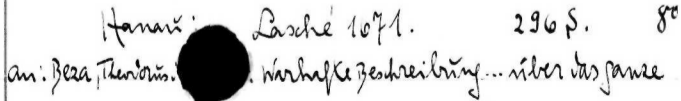 Hanau: Lasché 1671. 296 S. 8°
an: Beza, Theodorus. Warhafte Beschreibung... über das ganze